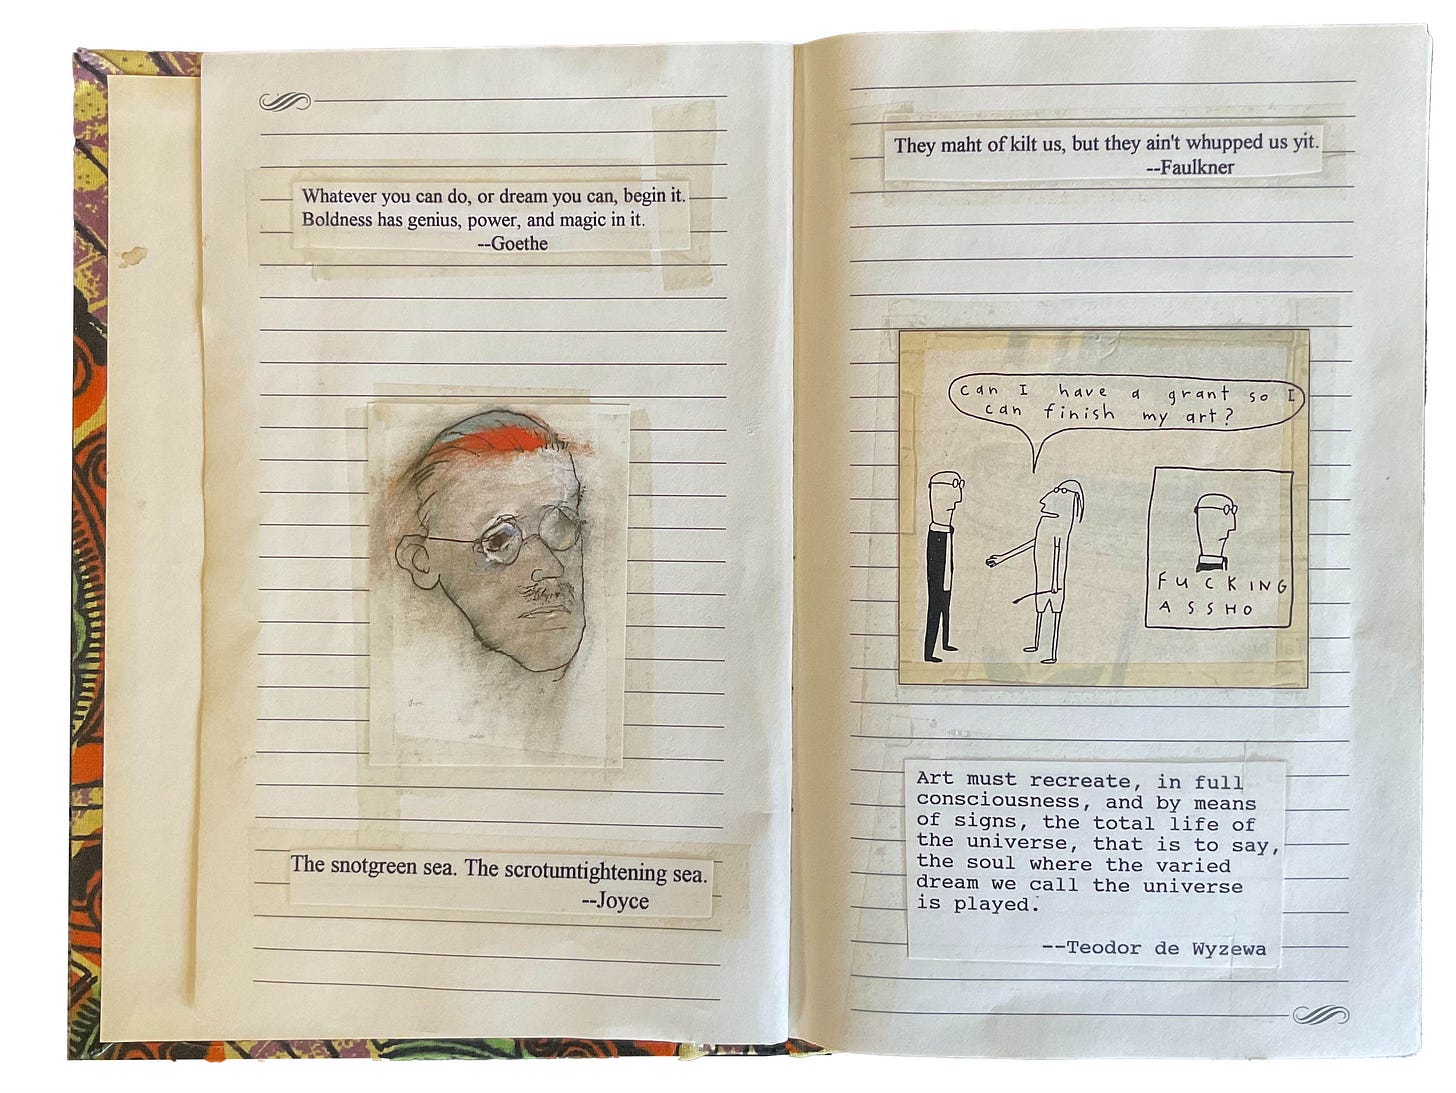 Whatever you can do, or dream you can, begin it.
Boldness has genius, power, and magic in it.
--Goethe
The snotgreen sea. The scrotumtightening sea.
--Joyce
They maht of kilt us, but they ain't whupped us yit.
--Faulkner
can I have a grant so I
can finish my art?
FUCKING
ASSHO
Art must recreate, in full
consciousness, and by means
of signs, the total life of
the universe, that is to say,
the soul where the varied
dream we call the universe
is played.
--Teodor de Wyzewa